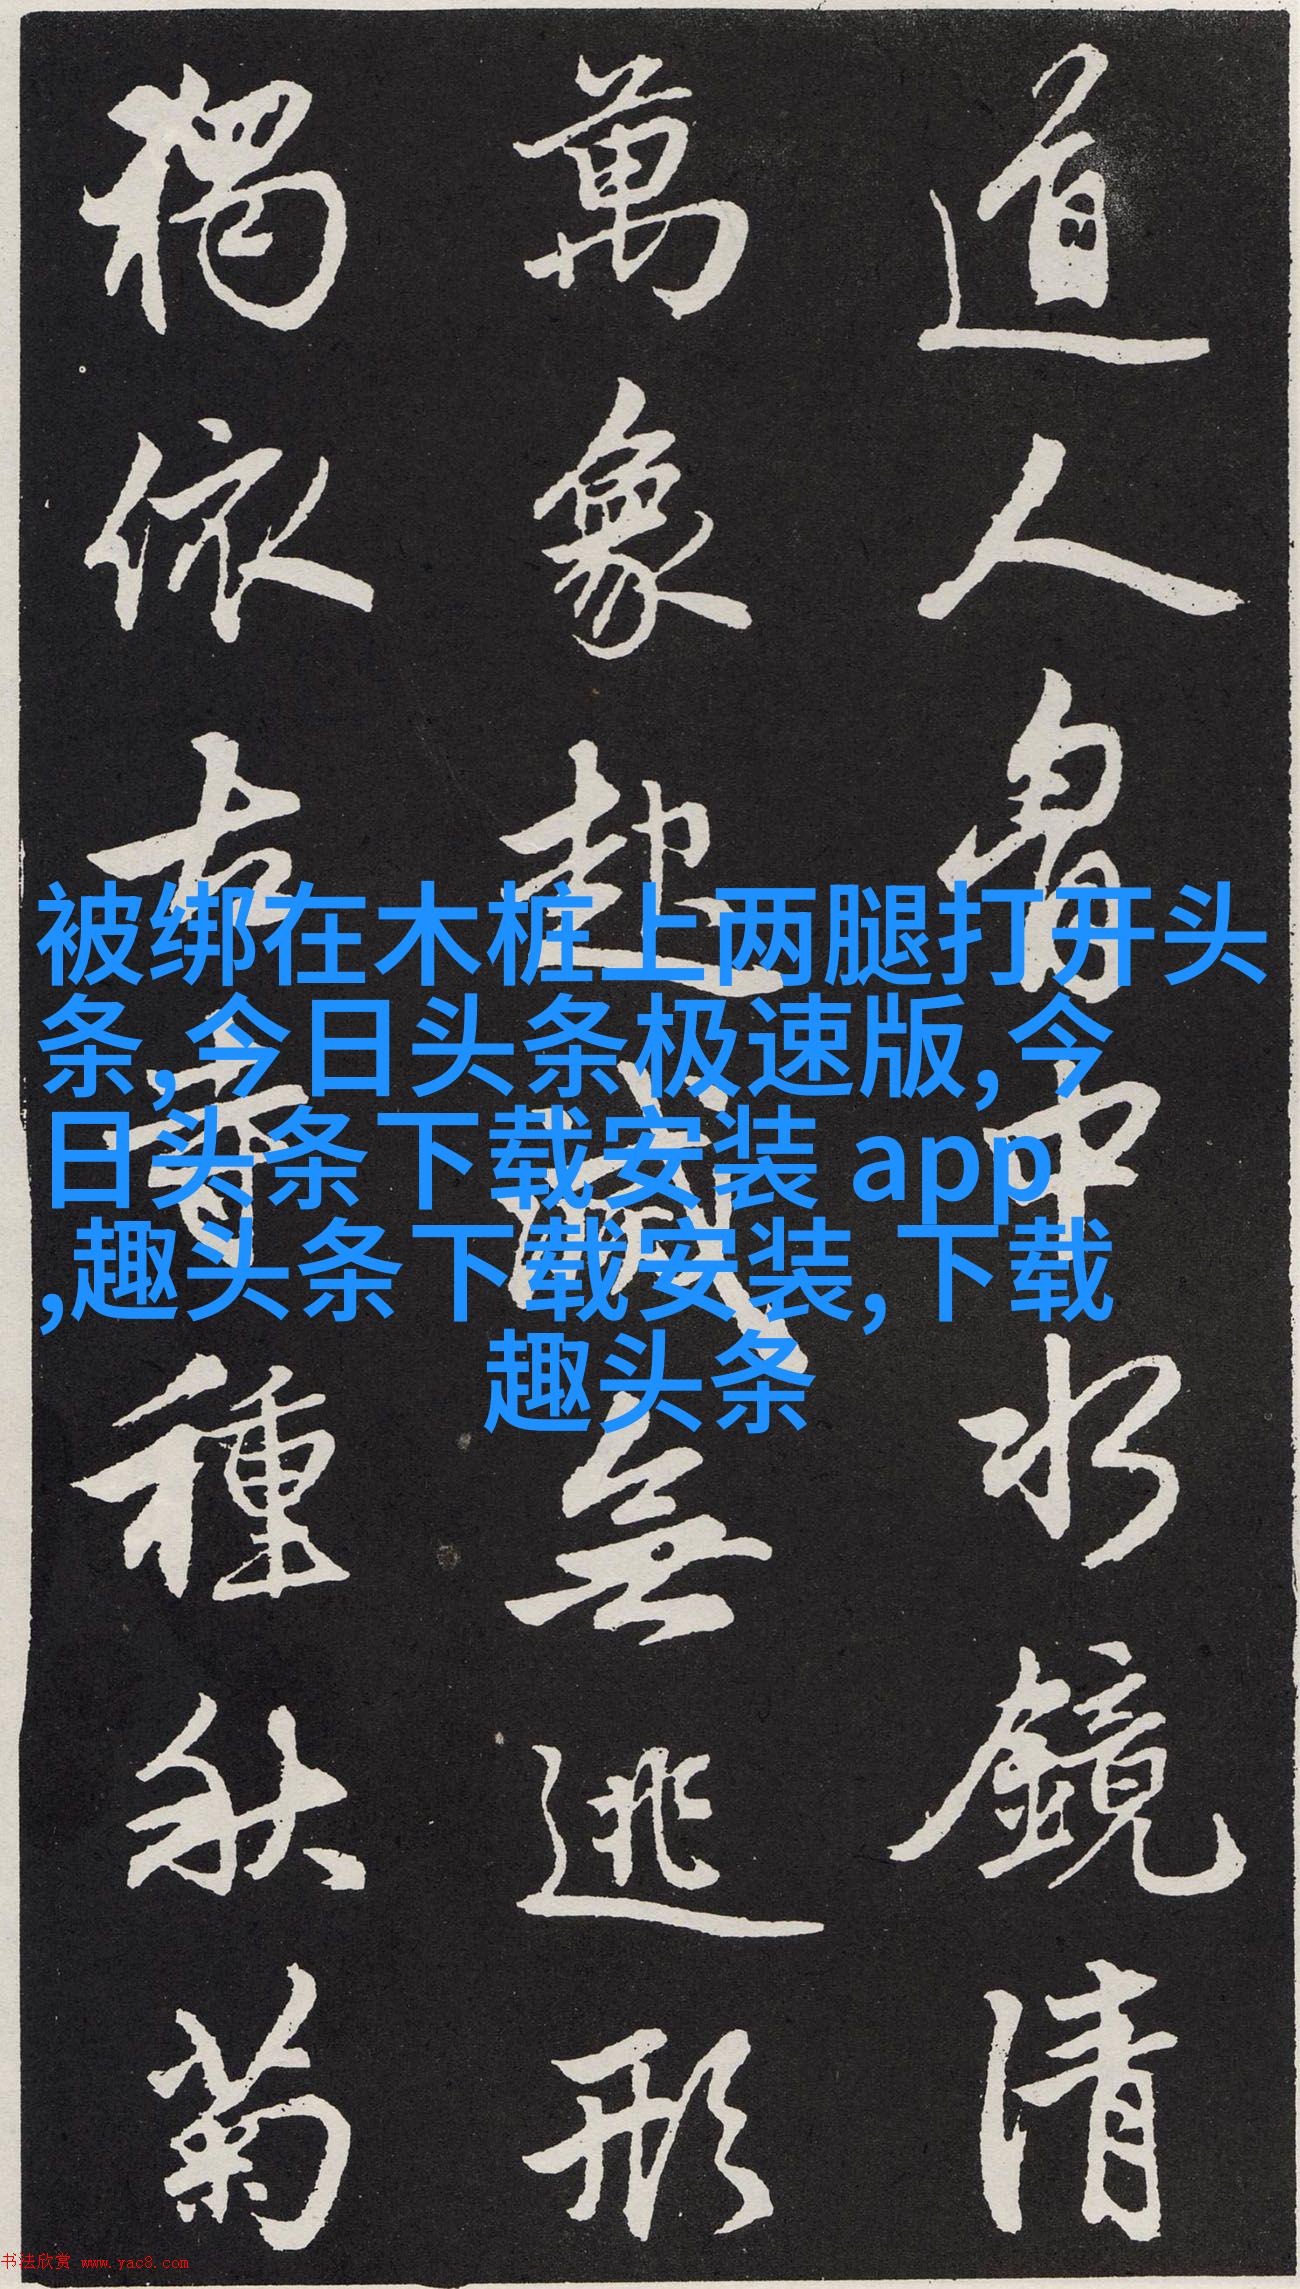 道人胷中水鏡清
萬象起滅無逃形
獨依古寺種秋菊
被绑在木桩上两腿打开头
条,今日头条极速版,今
日头条下载安装 app
,趣头条下载安装,下载
趣头条
书法欣赏 www.yac8.com